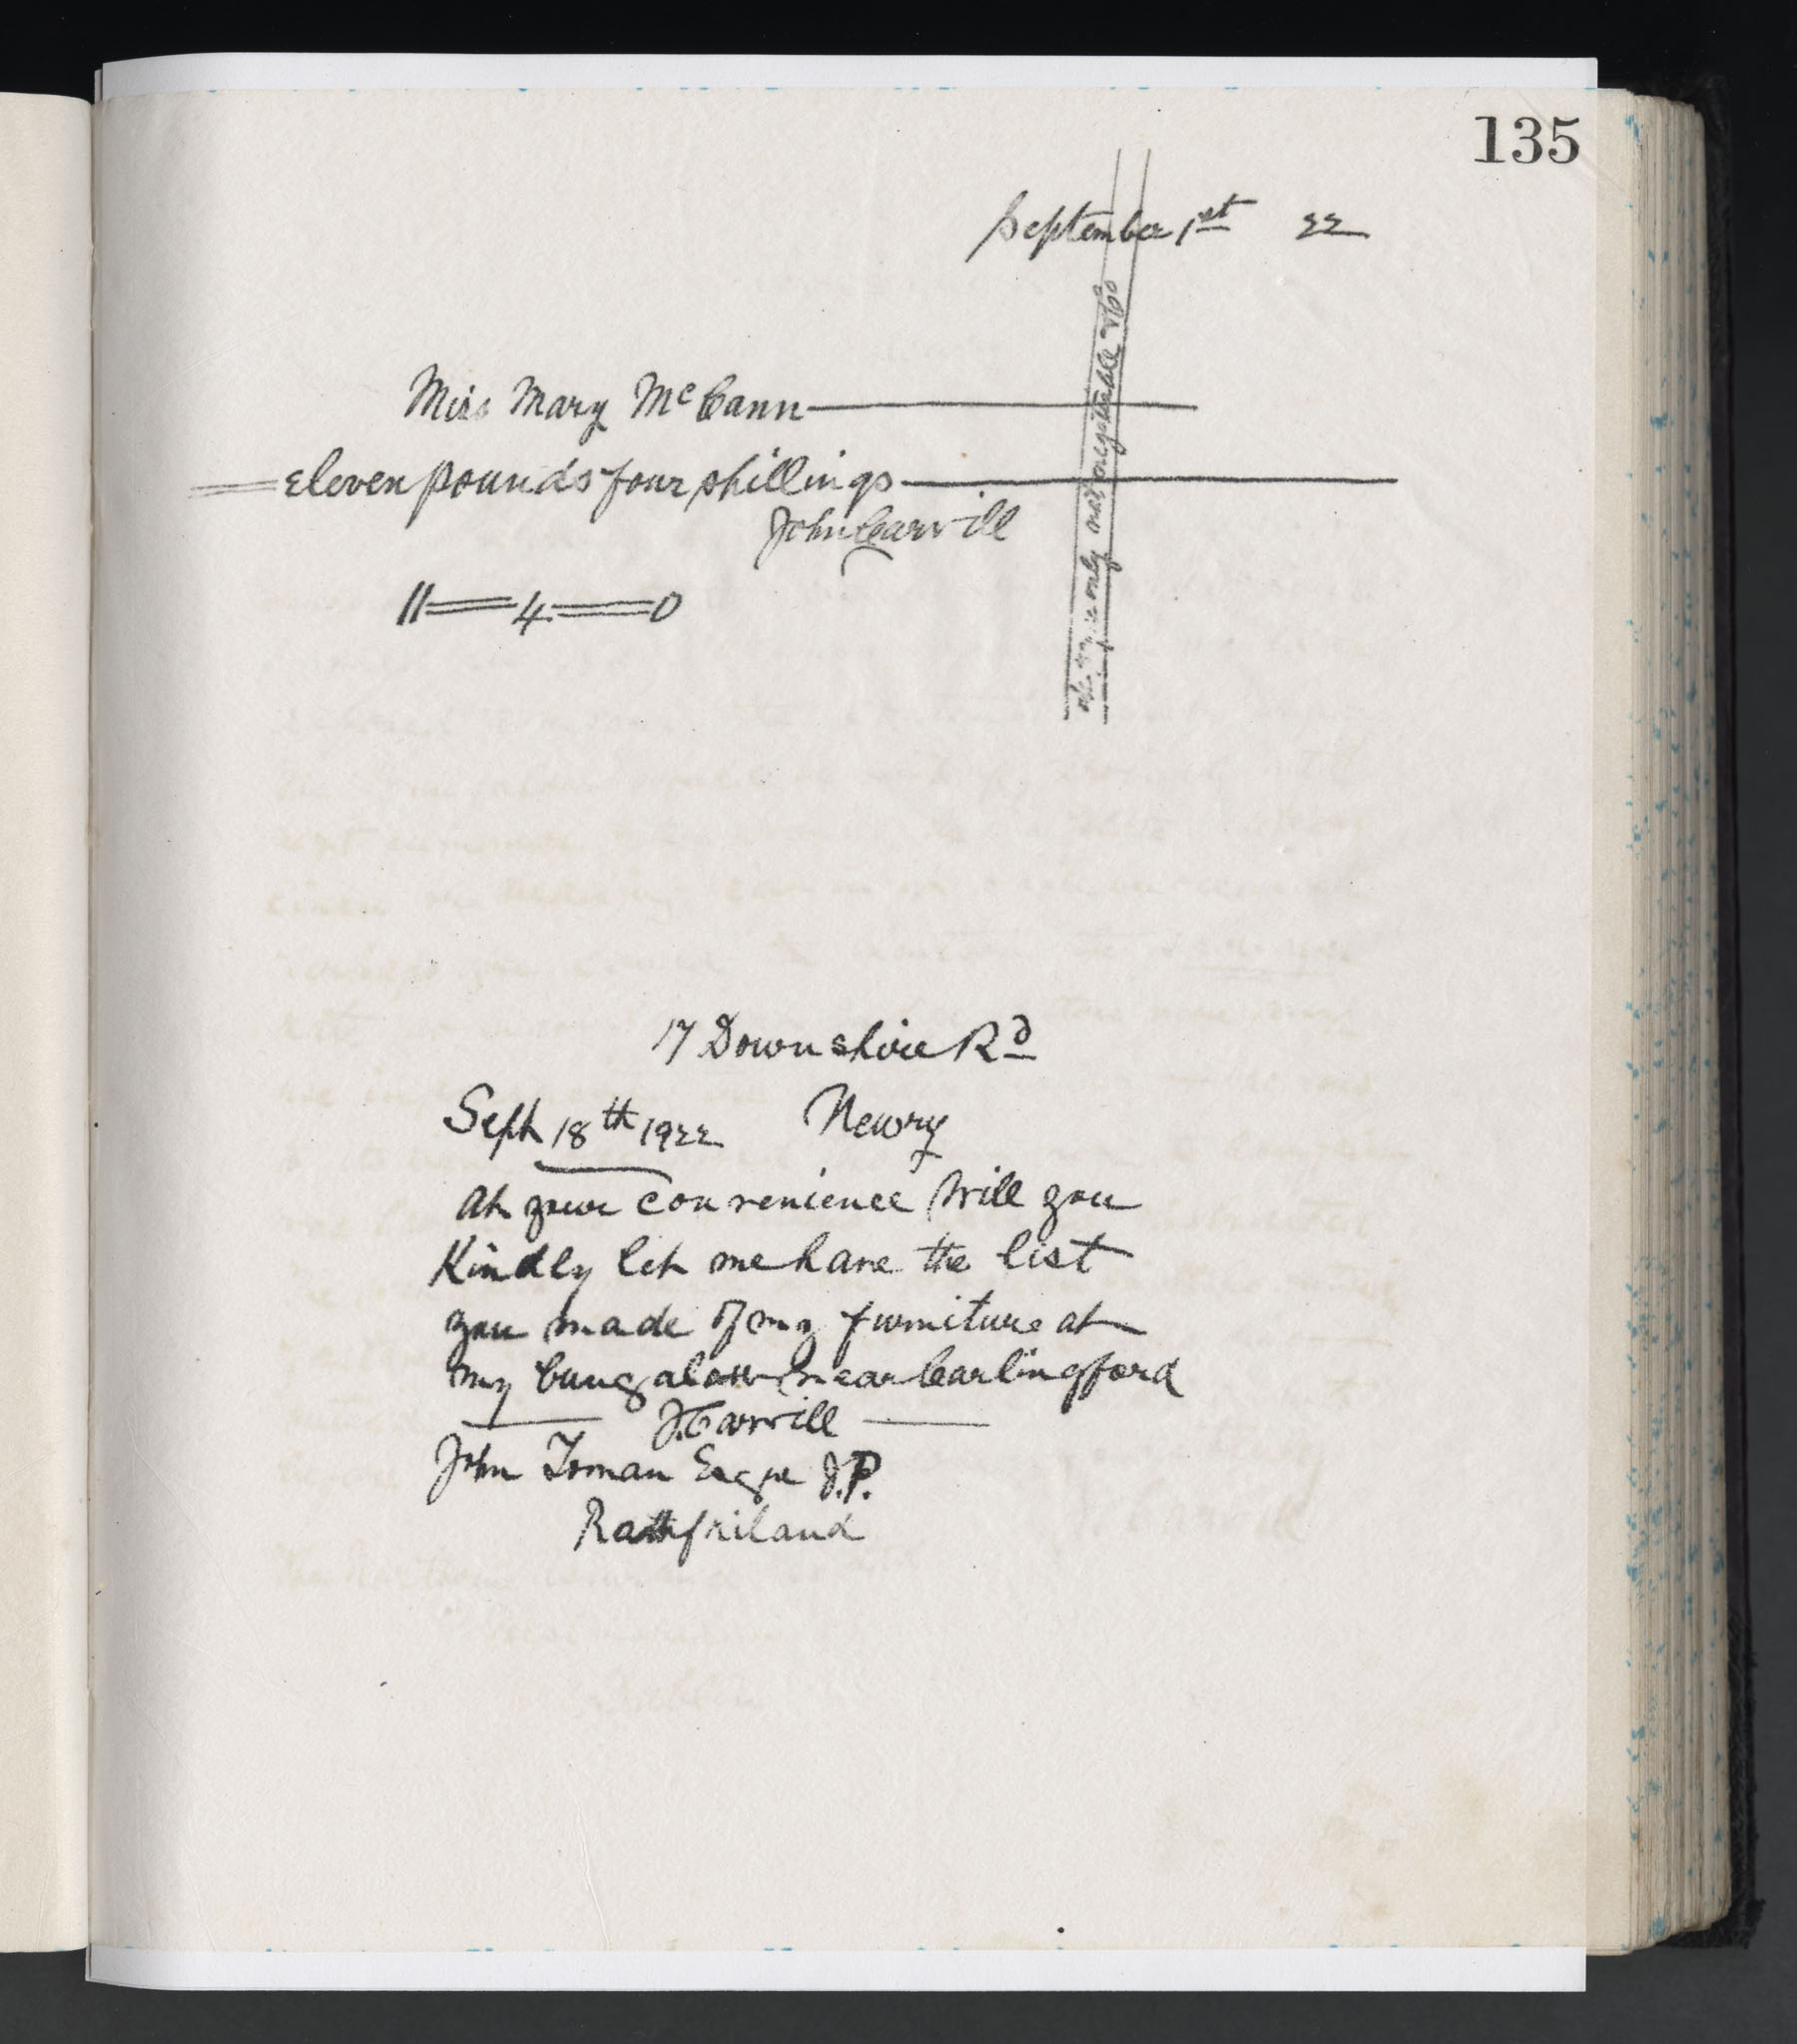 135
September 1st 22
Miss Mary McCann
eleven pounds four shillings
John Carvill
11 = 4 = 0
only not negotiable
17 Downshire Rd
Sept 18th 1922 Newry
At your convenience will you
Kindly let me have the list
you made of my furniture at
my bungalow near Carlingford
J. Carvill
John Toman Esqre J.P.
Rathfriland